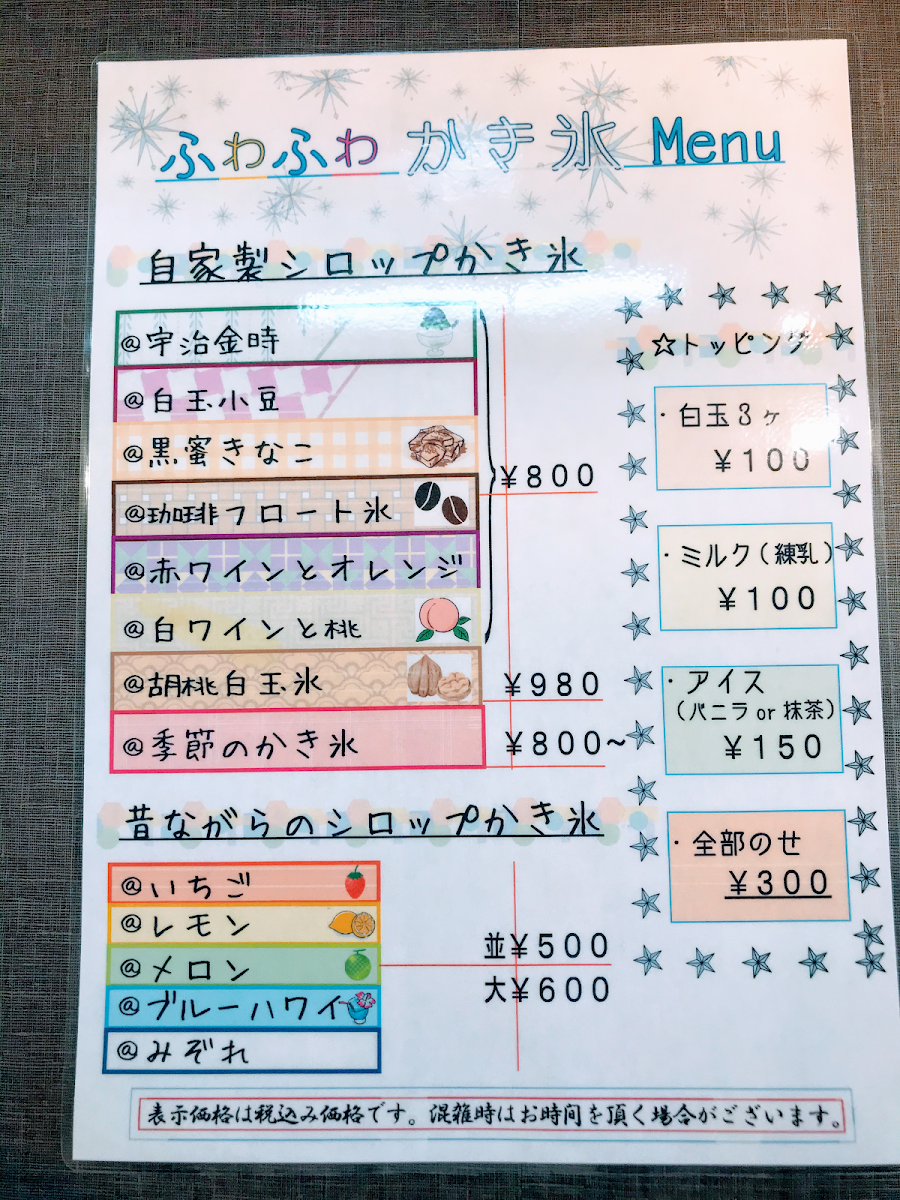 ふわふわ かき氷 Menu
自家製シロップかき氷
@宇治金時
@白玉小豆
@黒蜜きなこ
@珈琲フロート氷
@赤ワインとオレンジ
@白ワインと桃
¥800
@胡桃白玉氷
¥980
@季節のかき氷
¥800~
昔ながらのシロップかき氷
@いちご
@レモン
@メロン
@ブルーハワイ
@みぞれ
並¥500
大¥600
☆トッピング
・白玉3ヶ
¥100
・ミルク(練乳)
¥100
・アイス
(バニラor抹茶)
¥150
・全部のせ
¥300
表示価格は税込み価格です。混雑時はお時間を頂く場合がございます。